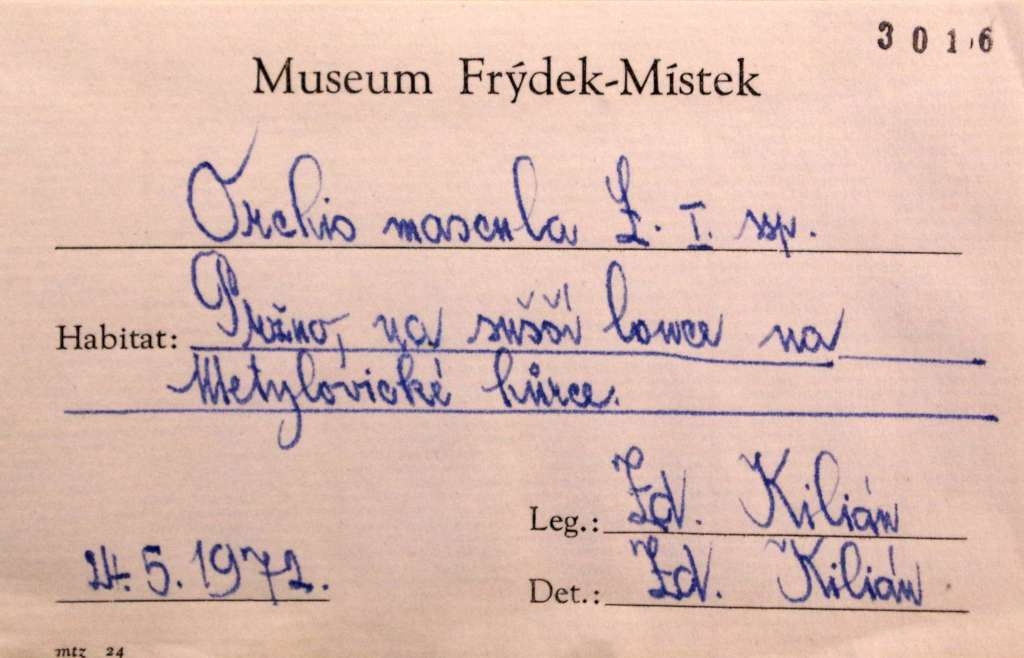 3016
Museum Frýdek-Místek
Orchis mascula L. I. ssp.
Habitat: Pržno, na sušší louce na
Metylovické hůrce.
Leg.: Zd. Kilián
24. 5. 1972.
Det.: Zd. Kilián
mtz 24